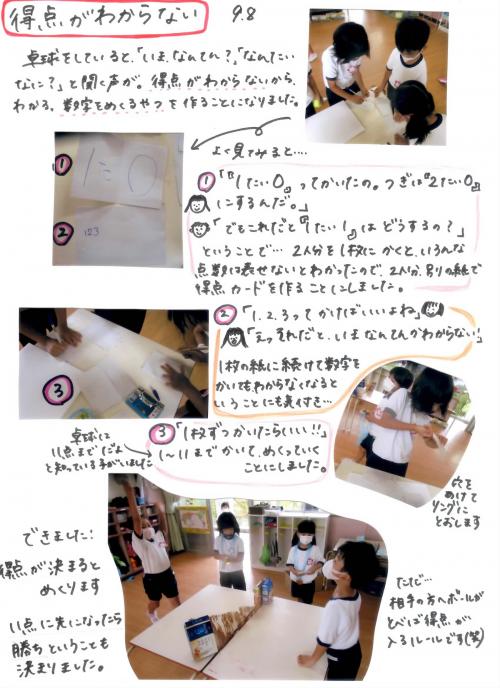 得点がわからない
9.8
卓球をしていると、「いま、なんてん?」「なんたい
なに?」と聞く声が。得点がわからないから、
わかる、数字をめくるやつを作ることになりました。
よく見てみると…
① 1たい0
② 123
① 「『1たい0』ってかいたの。つぎは『2たい0』
にするんだ。」
「でもこれだと『1たい1』はどうするの?」
ということで… 2人分を1枚にかくと、いろんな
点数は表せないとわかったので、2人分、別々の紙で
得点カードを作ることにしました。
② 「1.2.3ってかけばいいよね」
「えっそれだと、いまなんてんかわからない!」
1枚の紙に続けて数字を
かいてもわからなくなると
いうことにも気付き…
③
卓球は
11点までだよ
と知っている子がいました
③ 「1枚ずつかいたらいい!!」
1〜11までかいて、めくっていく
ことにしました。
穴を
あけて
リングに
とおします
できました!
得点が決まると
めくります
11点に先になったら
勝ちということも
決まりました。
ただ…
相手の方へボールが
とべば得点が
入るルールです(笑)